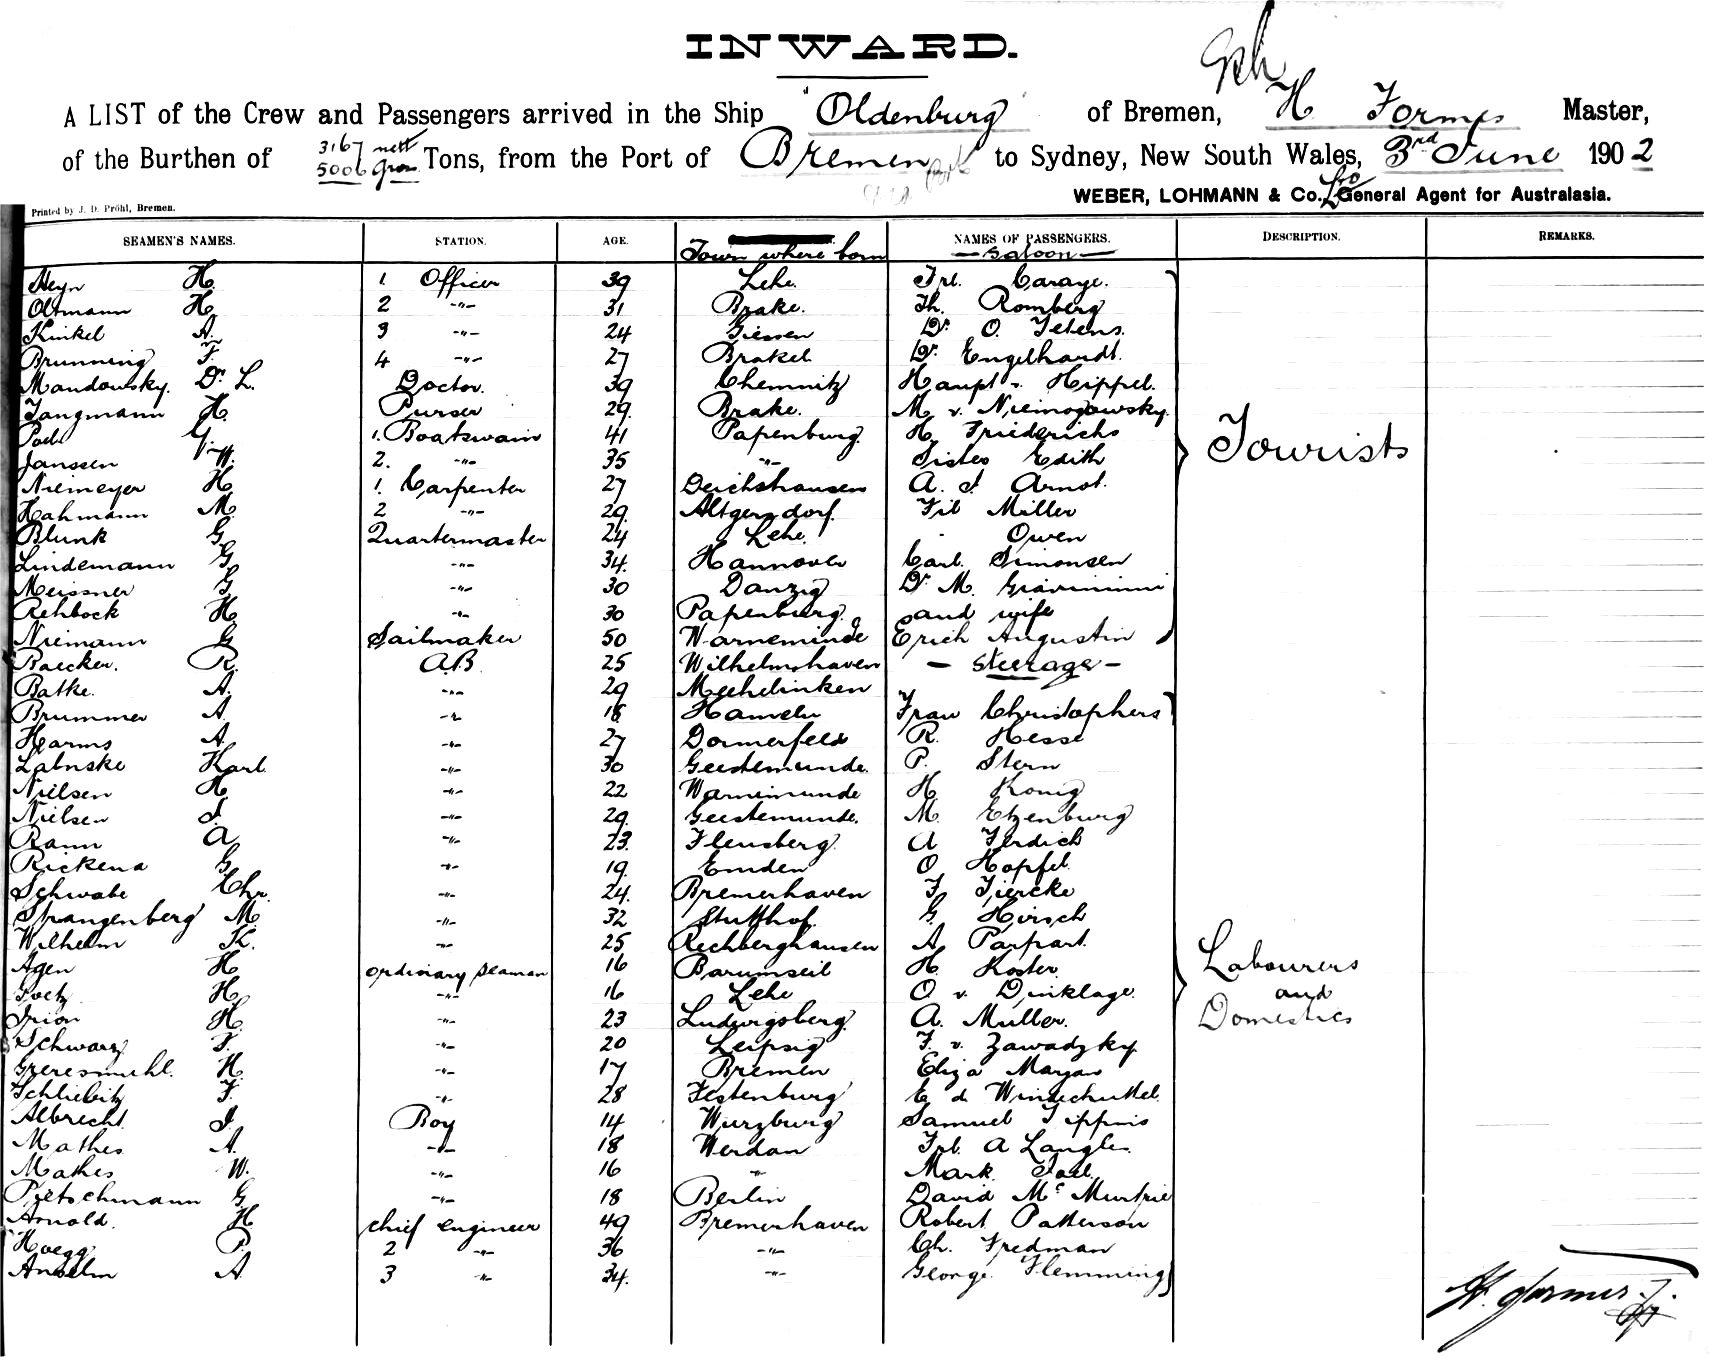 INWARD.
A LIST of the Crew and Passengers arrived in the Ship "Oldenburg" of Bremen, H. Formes Master,
of the Burthen of 3167 nett 5006 gross Tons, from the Port of Bremen to Sydney, New South Wales, 3rd June 1902
WEBER, LOHMANN & Co. Ld General Agent for Australasia.
Printed by J. D. Pröhl, Bremen.
SEAMEN'S NAMES. STATION. AGE. Town where born NAMES OF PASSENGERS. DESCRIPTION. REMARKS.
— Saloon —
Heyn H. 1 Officer 39 Lehe. Frl. Caraye.
Oltmann H. 2 -"- 31 Brake. Th. Romberg
Kinkel A. 3 -"- 24 Giessen Dr. O. Tetens.
Brunning F. 4 -"- 27 Brakel Dr. Engelhardt.
Mandowsky. Dr. L. Doctor. 39 Chemnitz Haupt v. Hippel.
Tangmann H. Purser 29. Brake. M. v. Niemogowsky.
G. 1. Boatswain 41 Papenburg. H. Friederichs
Janssen W. 2. -"- 35 -"- Sister Edith
Tourists
Niemeyer H. 1. Carpenter 27 Deichshausen A. J. Arnot.
Hahmann M. 2 -"- 29. Altgersdorf. Frl Miller
Blunk G. Quartermaster 24 Lehe. " Owen
Lindemann G. -"- 34. Hannover Carl. Simonsen
Meissner G. -"- 30 Danzig Dr. M. Graviminni
Rehbock H. -"- 30 Papenburg. and wife
Niemann G. Sailmaker 50 Warneminde Erich Augustin
Baecker. R. A.B. 25 Wilhelmshaven — Steerage —
Batke. A. -"- 29 Mechelinken
Brummer A. -"- 18 Hameln Frau Christophers
Harms A. -"- 27 Dormerfeld R. Hesse
Labnske Karl. -"- 30 Geestemunde. P. Stern
Nielsen H. -"- 22 Warnemunde H. Konig
Nielsen J. -"- 29. Geestemunde. M. Etzenburg
Rann A. -"- 23. Flensberg. A Ferdich
Rickena G. -"- 19. Emden O Hopfel.
Schwabe Chr. -"- 24. Bremerhaven F. Fiercke
Spangenberg M -"- 32 Stutthof. G. Hirsch
Wilhelm K. -"- 25 Rechberghausen A. Parpart.
Agen H. ordinary seaman 16 Barumseil H. Koster.
Labourers
Goetz H. -"- 16 Lehe O v. Dinklage.
and
Irion H. -"- 23 Ludwigsberg. A. Muller.
Domestics
Schwarz F. -"- 20 Leipsig F. v. Zawadzky.
H -"- 17 Bremen Eliza Mayan
Schliebitz F. -"- 28 Festenburg E d. Windschuttel.
Albrecht. J. Boy 14 Wurzburg Samuel Tippins
Mathes A. -"- 18 Werdan Frl. A Langler.
Mathes W. -"- 16 -"- Mark
Pietschmann G. -"- 18 Berlin David Mc Murtrie
Arnold. H chief engineer 49 Bremerhaven Robert Patterson
Hoegg P. 2 -"- 36 -"- Ch. Fredman
Anselm A. 3 -"- 34. -"- George Flemming
H. Formes